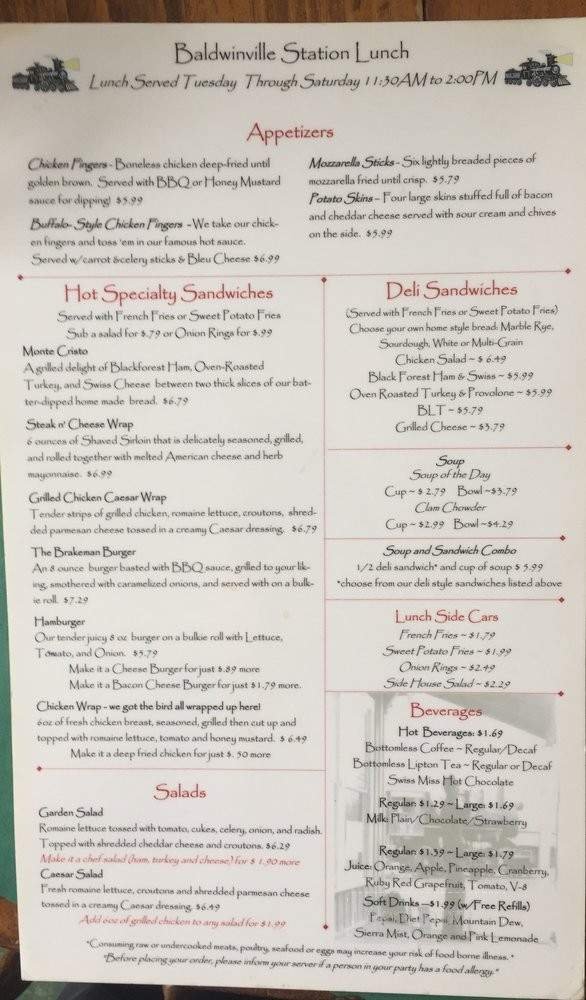 Baldwinville Station Lunch
Lunch Served Tuesday Through Saturday 11:30AM to 2:00PM
Appetizers
Chicken Fingers - Boneless chicken deep-fried until
golden brown. Served with BBQ or Honey Mustard
sauce for dipping! $5.99
Buffalo-Style Chicken Fingers - We take our chick-
en fingers and toss 'em in our famous hot sauce.
Served w/carrot &celery sticks & Bleu Cheese $6.99
Mozzarella Sticks - Six lightly breaded pieces of
mozzarella fried until crisp. $5.79
Potato Skins - Four large skins stuffed full of bacon
and cheddar cheese served with sour cream and chives
on the side. $5.99
Hot Specialty Sandwiches
Served with French Fries or Sweet Potato Fries
Sub a salad for $.79 or Onion Rings for $.99
Monte Cristo
A grilled delight of Blackforest Ham, Oven-Roasted
Turkey, and Swiss Cheese between two thick slices of our bat-
ter-dipped home made bread. $6.79
Steak n' Cheese Wrap
6 ounces of Shaved Sirloin that is delicately seasoned, grilled,
and rolled together with melted American cheese and herb
mayonnaise. $6.99
Grilled Chicken Caesar Wrap
Tender strips of grilled chicken, romaine lettuce, croutons, shred-
ded parmesan cheese tossed in a creamy Caesar dressing. $6.79
The Brakeman Burger
An 8 ounce burger basted with BBQ sauce, grilled to your lik-
ing, smothered with caramelized onions, and served with on a bulk-
ie roll. $7.29
Hamburger
Our tender juicy 8 oz burger on a bulkie roll with Lettuce,
Tomato, and Onion. $5.79
Make it a Cheese Burger for just $.89 more
Make it a Bacon Cheese Burger for just $1.79 more.
Chicken Wrap - we got the bird all wrapped up here!
6oz of fresh chicken breast, seasoned, grilled then cut up and
topped with romaine lettuce, tomato and honey mustard. $ 6.49
Make it a deep fried chicken for just $. 50 more
Salads
Garden Salad
Romaine lettuce tossed with tomato, cukes, celery, onion, and radish.
Topped with shredded cheddar cheese and croutons. $6.29
Make it a chef salad (ham, turkey and cheese) for $ 1.90 more
Caesar Salad
Fresh romaine lettuce, croutons and shredded parmesan cheese
tossed in a creamy Caesar dressing. $6.49
Add 6oz of grilled chicken to any salad for $1.99
Deli Sandwiches
(Served with French Fries or Sweet Potato Fries)
Choose your own home style bread: Marble Rye,
Sourdough, White or Multi-Grain
Chicken Salad ~ $ 6.49
Black Forest Ham & Swiss ~ $5.99
Oven Roasted Turkey & Provolone ~ $5.99
BLT ~ $5.79
Grilled Cheese ~ $3.79
Soup
Soup of the Day
Cup ~ $ 2.79 Bowl ~$3.79
Clam Chowder
Cup ~ $2.99 Bowl ~$4.29
Soup and Sandwich Combo
1/2 deli sandwich* and cup of soup $ 5.99
*choose from our deli style sandwiches listed above
Lunch Side Cars
French Fries ~ $1.79
Sweet Potato Fries ~ $1.99
Onion Rings ~ $2.49
Side House Salad ~ $2.29
Beverages
Hot Beverages: $1.69
Bottomless Coffee ~ Regular/Decaf
Bottomless Lipton Tea ~ Regular or Decaf
Swiss Miss Hot Chocolate
Regular: $1.29 ~ Large: $1.69
Milk: Plain/Chocolate/Strawberry
Regular: $1.39 ~ Large: $1.79
Juice: Orange, Apple, Pineapple, Cranberry,
Ruby Red Grapefruit, Tomato, V-8
Soft Drinks ~$1.99 (w/Free Refills)
Pepsi, Diet Pepsi, Mountain Dew,
Sierra Mist, Orange and Pink Lemonade
*Consuming raw or undercooked meats, poultry, seafood or eggs may increase your risk of food borne illness. *
*Before placing your order, please inform your server if a person in your party has a food allergy.*